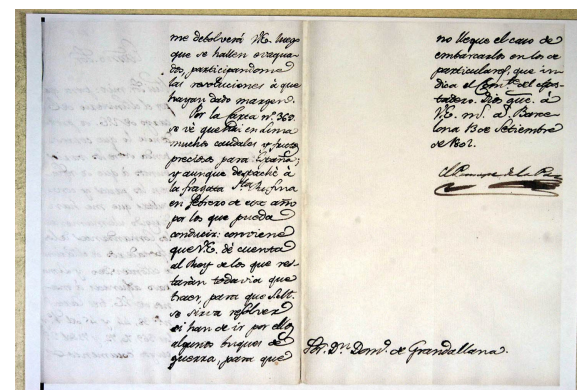 me debolverá VE. luego
que se hallen evaquados,
participandome
las resoluciones à que
hayan dado margen.
Por la Carta nº. 360.
se vé que hai en Lima
muchos caudales y frutos
precisos para España;
y aunque despaché à
la fragata Sta. Rufina
en Febrero de este año
por los que pueda
conducir: conviene
que VE. dé cuenta
al Rey de los que res-
tarán todavia que
traer, para que S.M.
se sirva resolver
si han de ir por ellos
algunos buques de
guerra, para que
no llegue el caso de
embarcarlos en los de
particulares, que in-
dica el Comte. del apos-
tadero. Dios gue. à
VE. ms. as. Barce-
lona 13 de Setiembre
de 1802.
El Principe de la Paz
Sor. Dn. Domo. de Grandallana.